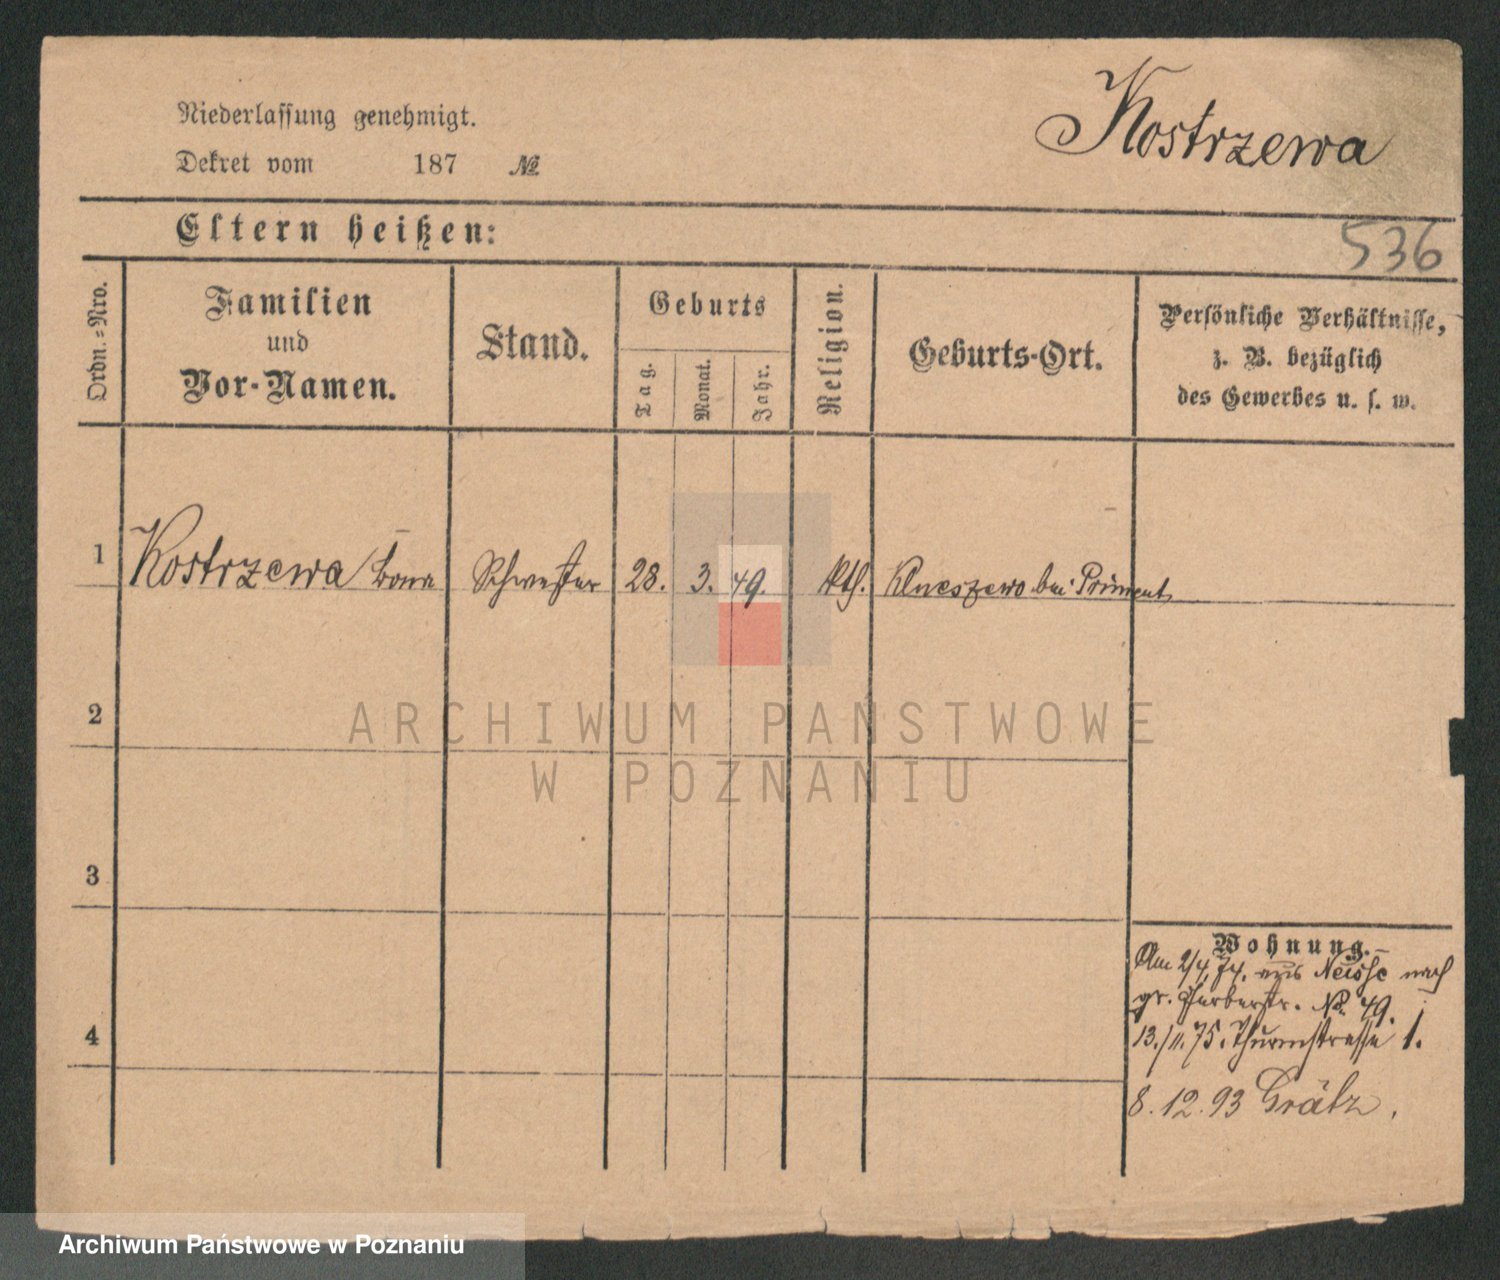 Niederlassung genehmigt.
Dekret vom 187 №
Kostrzewa
536
Eltern heißen:
Ordn.=Nro.
Familien
und
Vor-Namen.
Stand.
Geburts
Tag.
Monat.
Jahr.
Religion.
Geburts-Ort.
Persönliche Verhältnisse,
z. B. bezüglich
des Gewerbes u. s. w.
1 Kostrzewa Bona Schwester 28. 3. 49. kth. bei Priment
ARCHIWUM PAŃSTWOWE
W POZNANIU
2
3
4
Wohnung.
Am 2/4. 74. aus Neisse nach
gr. Gerberstr. № 49.
13./11. 75. Thurmstrasse 1.
8. 12. 93 Grätz.
Archiwum Państwowe w Poznaniu